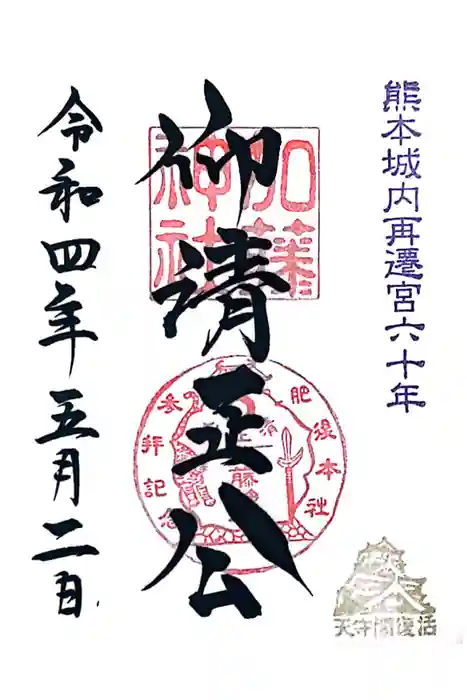 熊本城内再遷宮六十年
加藤神社
仰清正公
肥後本社
参拝記念
令和四年五月二日
天守閣復活